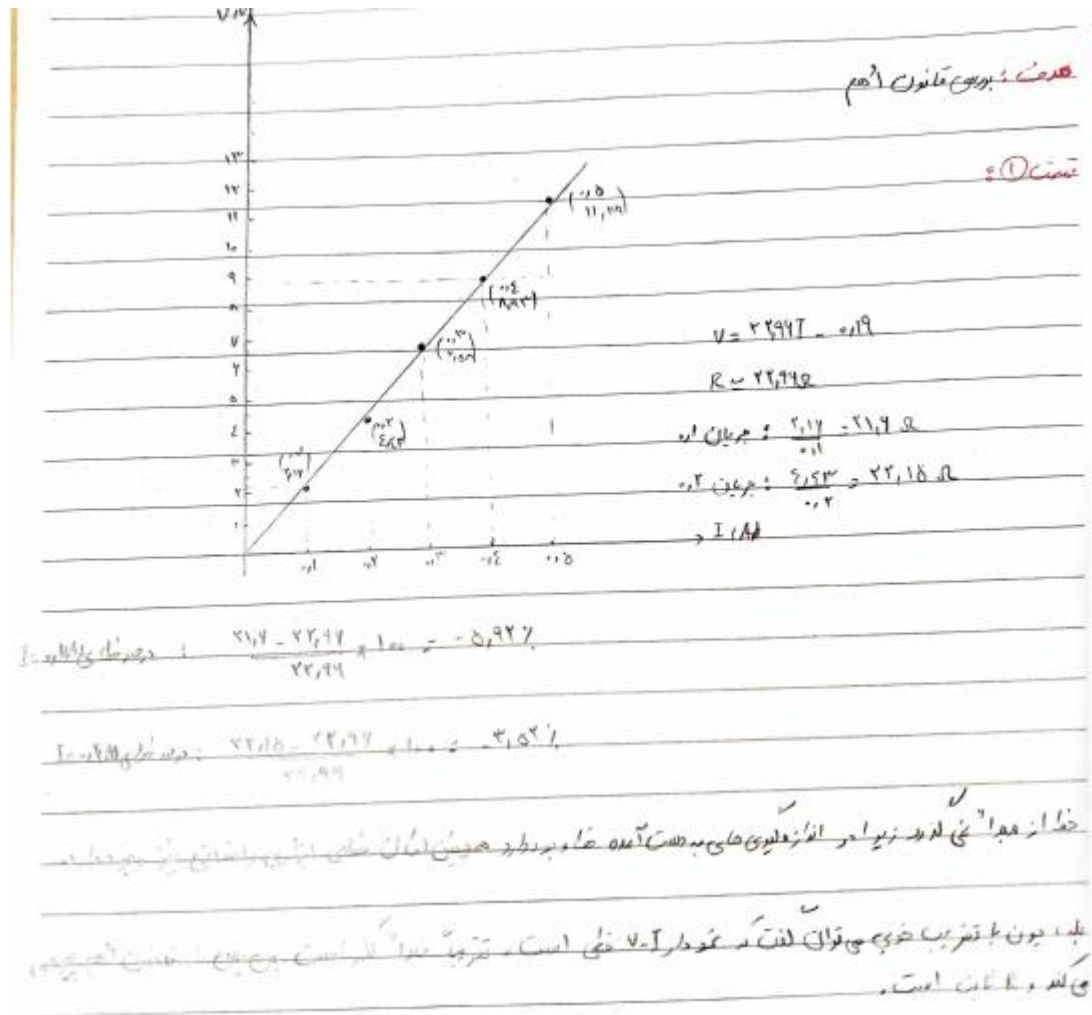 هدف : بررسی قانون اُهم
قسمت ① :
V(v)
۱۳
۱۲
۱۱
۱۰
۹
۸
۷
۶
۵
٤
۳
۲
۱
(۰٫۵ / ۱۱٫۳۹)
(۰٫٤ / ۸٫۹۳)
(۰٫۲ / ٤٫٤۳)
(۰٫۱ / ۲٫۱۶)
۰٫۱ ۰٫۲ ۰٫۳ ۰٫٤ ۰٫۵
I (A)
V = ۲۲٫۹۶I - ۰٫۱۹
R ≃ ۲۲٫۹۶Ω
جریان ۰٫۱ : ۲٫۱۶ / ۰٫۱ = ۲۱٫۶ Ω
جریان ۰٫۲ : ٤٫٤۳ / ۰٫۲ = ۲۲٫۱۵ Ω
درصد خطای : ۲۱٫۶ - ۲۲٫۹۶ / ۲۲٫۹۶ × ۱۰۰ = -۵٫۹۲٪
درصد خطای : ۲۲٫۱۵ - ۲۲٫۹۶ / ۲۲٫۹۶ × ۱۰۰ = -۳٫۵۲٪
خط از مبدأ نمی گذرد زیرا در اندازه گیری های به دست آمده خطا وجود دارد همچنین امکان خطای نیز وجود دارد.
بله چون با تقریب خوبی می توان گفت که نمودار V-I خطی است و تقریباً از مبدأ است پس از قانون اُهم پیروی
می کند و R ثابت است.